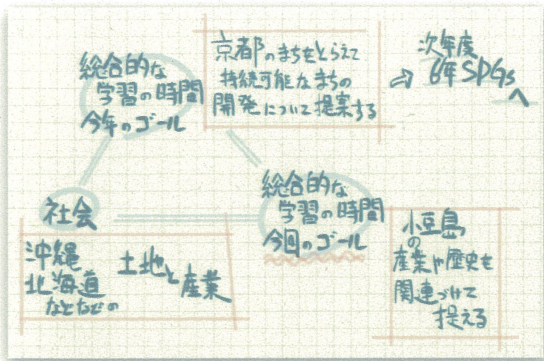 総合的な
学習の時間
今年のゴール
京都のまちをとらえて
持続可能なまちの
開発について提案する
⇨
次年度
6年SDGs
へ
社会
沖縄
北海道
などなどの
土地と産業
総合的な
学習の時間
今回のゴール
小豆島
の
産業や歴史を
関連づけて
捉える